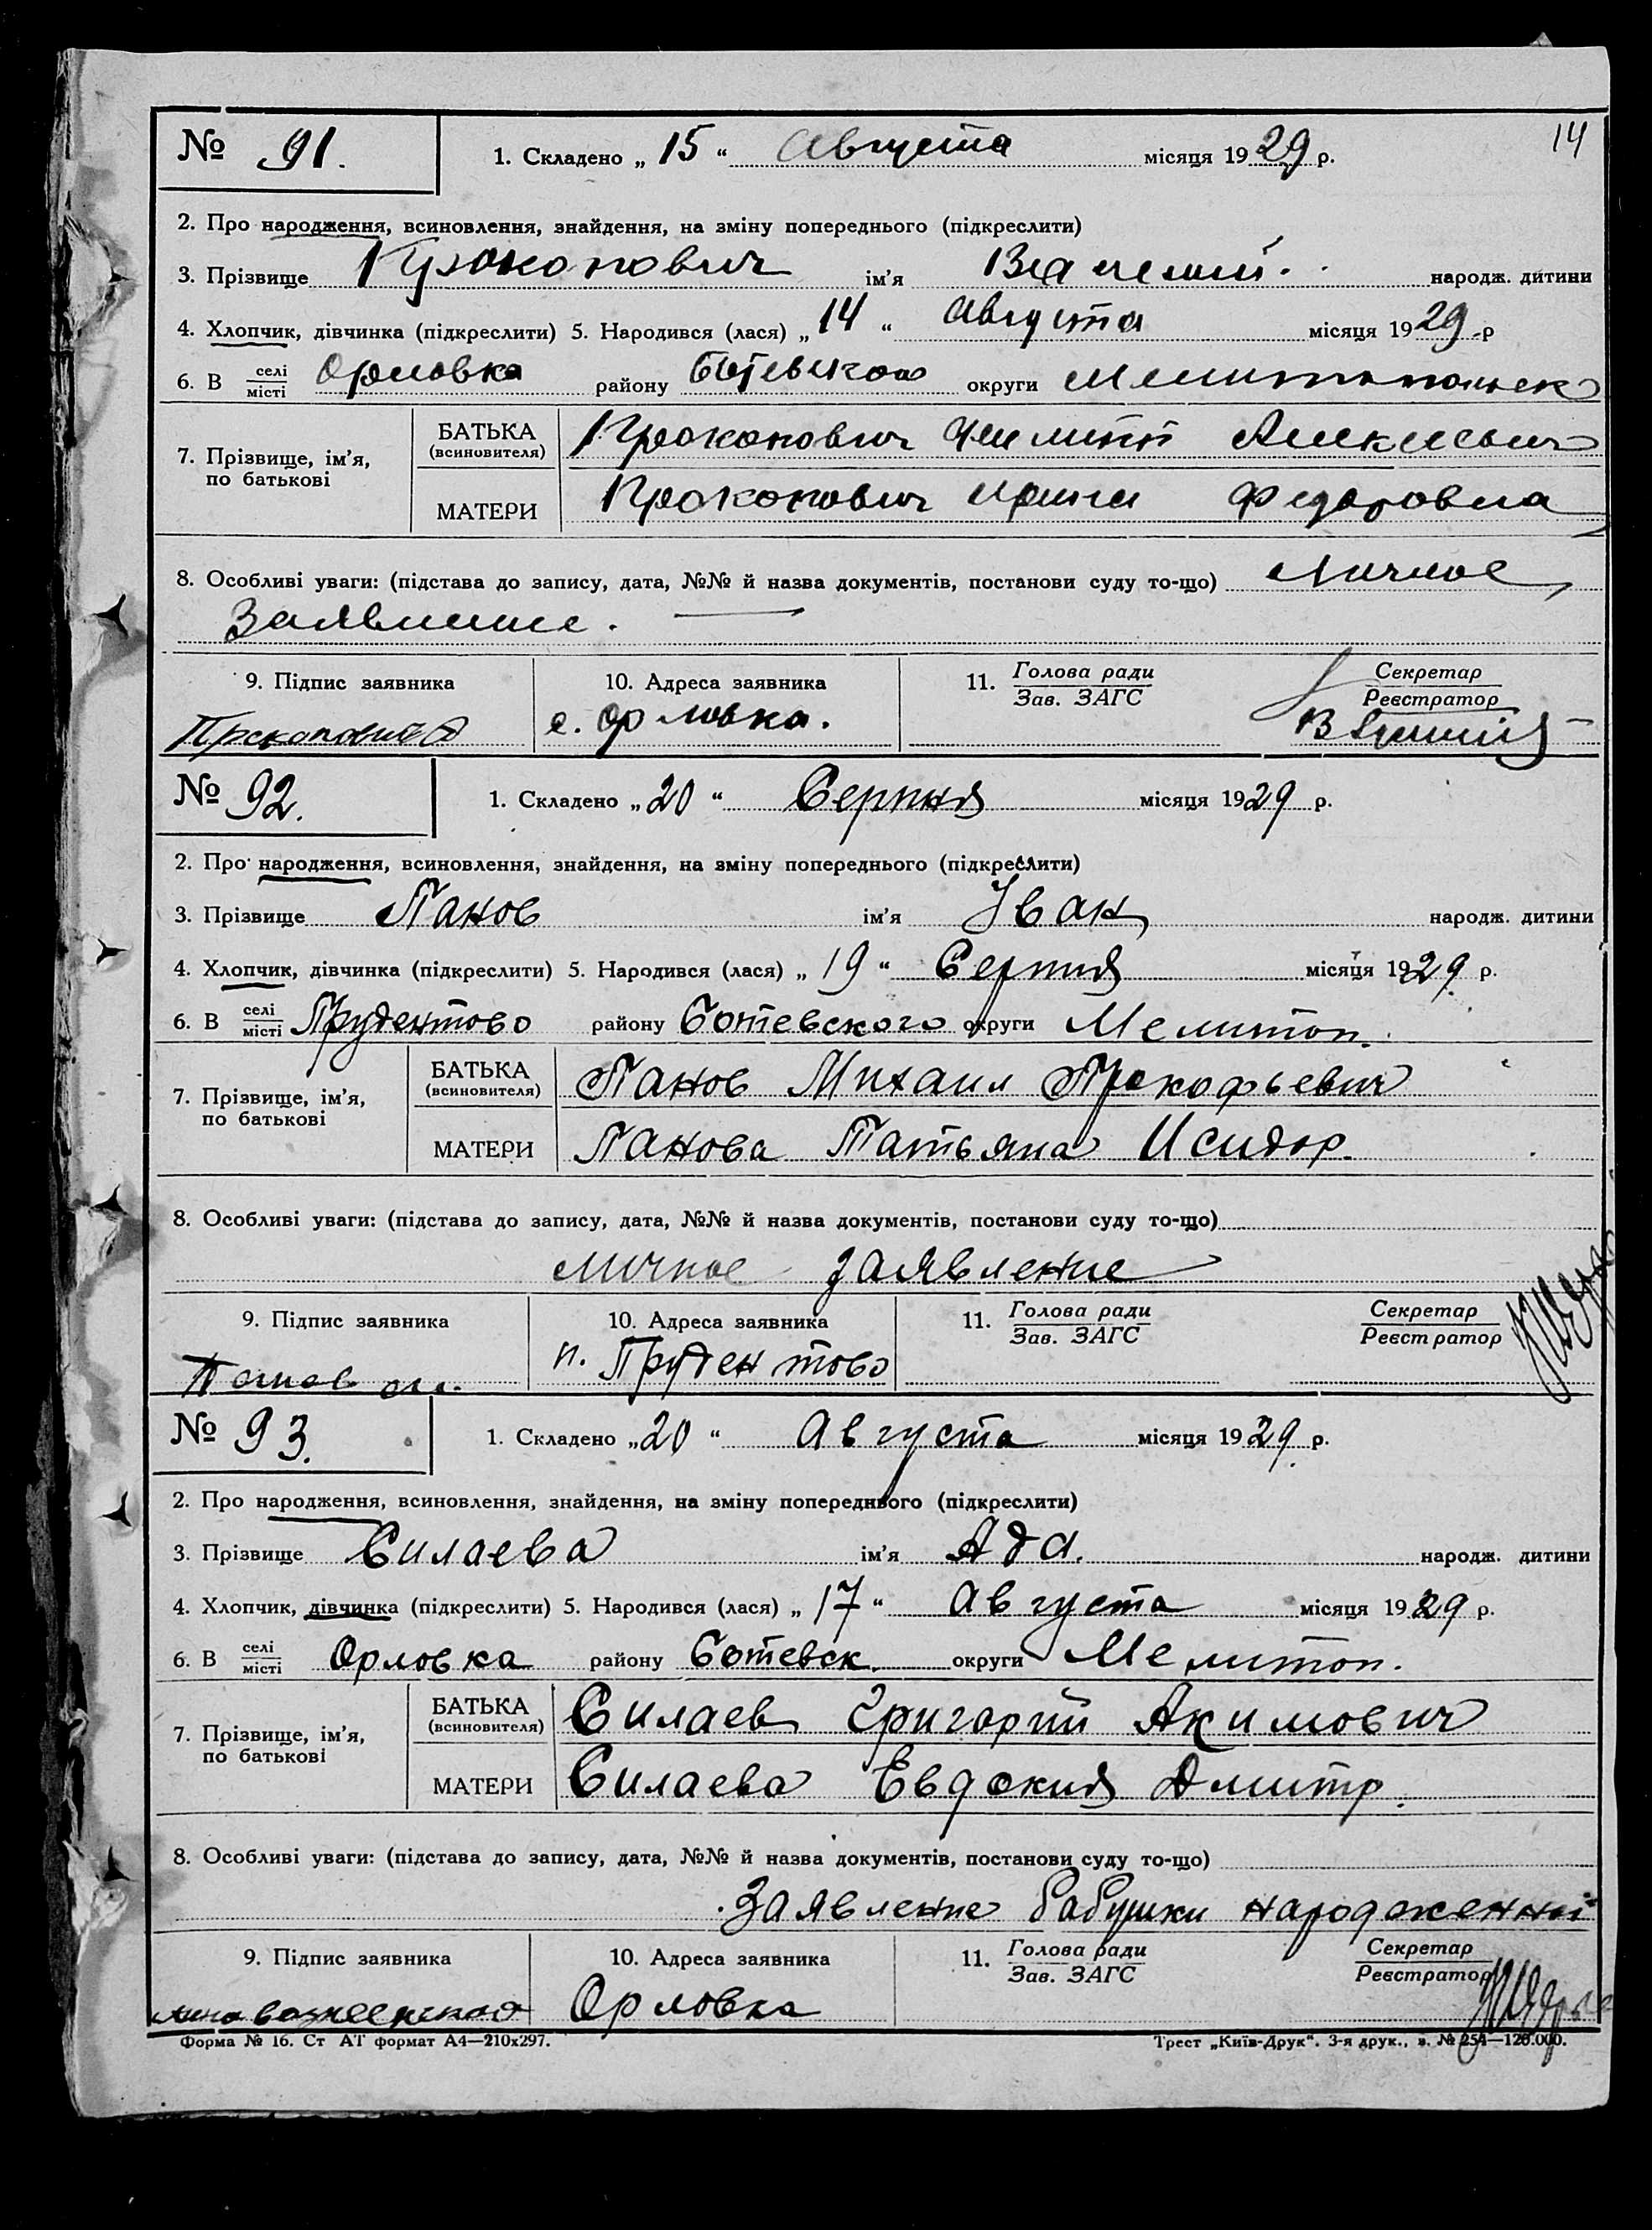 14
№ 91.
1. Складено „ 15 “ Августа місяця 1929 р.
2. Про народження, всиновлення, знайдення, на зміну попереднього (підкреслити)
3. Прізвище Прокопович ім'я народж. дитини
4. Хлопчик, дівчинка (підкреслити) 5. Народився (лася) „ 14 “ Августа місяця 1929 р
6. В селі місті Орловка району округи
7. Прізвище, ім'я, по батькові
БАТЬКА (всиновителя) Прокопович
МАТЕРИ Прокопович Федоровна
8. Особливі уваги: (підстава до запису, дата, №№ й назва документів, постанови суду то-що) Личное
Заявление.
9. Підпис заявника 10. Адреса заявника 11. Голова ради Зав. ЗАГС Секретар Реєстратор
с. Орловка.
№ 92.
1. Складено „ 20 “ Серпня місяця 1929 р.
2. Про народження, всиновлення, знайдення, на зміну попереднього (підкреслити)
3. Прізвище Панов ім'я Іван народж. дитини
4. Хлопчик, дівчинка (підкреслити) 5. Народився (лася) „ 19 “ Серпня місяця 1929 р.
6. В селі місті Прудентово району Ботевского округи Мелитоп.
7. Прізвище, ім'я, по батькові
БАТЬКА (всиновителя) Панов Михаил Прокофьевич
МАТЕРИ Панова Татьяна Исидор.
8. Особливі уваги: (підстава до запису, дата, №№ й назва документів, постанови суду то-що)
личное заявление
9. Підпис заявника 10. Адреса заявника 11. Голова ради Зав. ЗАГС Секретар Реєстратор
Панов п. Прудентово
№ 93.
1. Складено „ 20 “ Августа місяця 1929 р.
2. Про народження, всиновлення, знайдення, на зміну попереднього (підкреслити)
3. Прізвище Силаева ім'я Ада. народж. дитини
4. Хлопчик, дівчинка (підкреслити) 5. Народився (лася) „ 17 “ Августа місяця 1929 р.
6. В селі місті Орловка району Ботевск. округи Мелитоп.
7. Прізвище, ім'я, по батькові
БАТЬКА (всиновителя) Силаев Григорий Акимович
МАТЕРИ Силаева Евдокия Дмитр.
8. Особливі уваги: (підстава до запису, дата, №№ й назва документів, постанови суду то-що)
Заявление бабушки
9. Підпис заявника 10. Адреса заявника 11. Голова ради Зав. ЗАГС Секретар Реєстратор
Орловка
Форма № 16. Ст АТ формат А4—210х297. Трест „Київ-Друк“. 3-я друк., з. № 254—120.000.